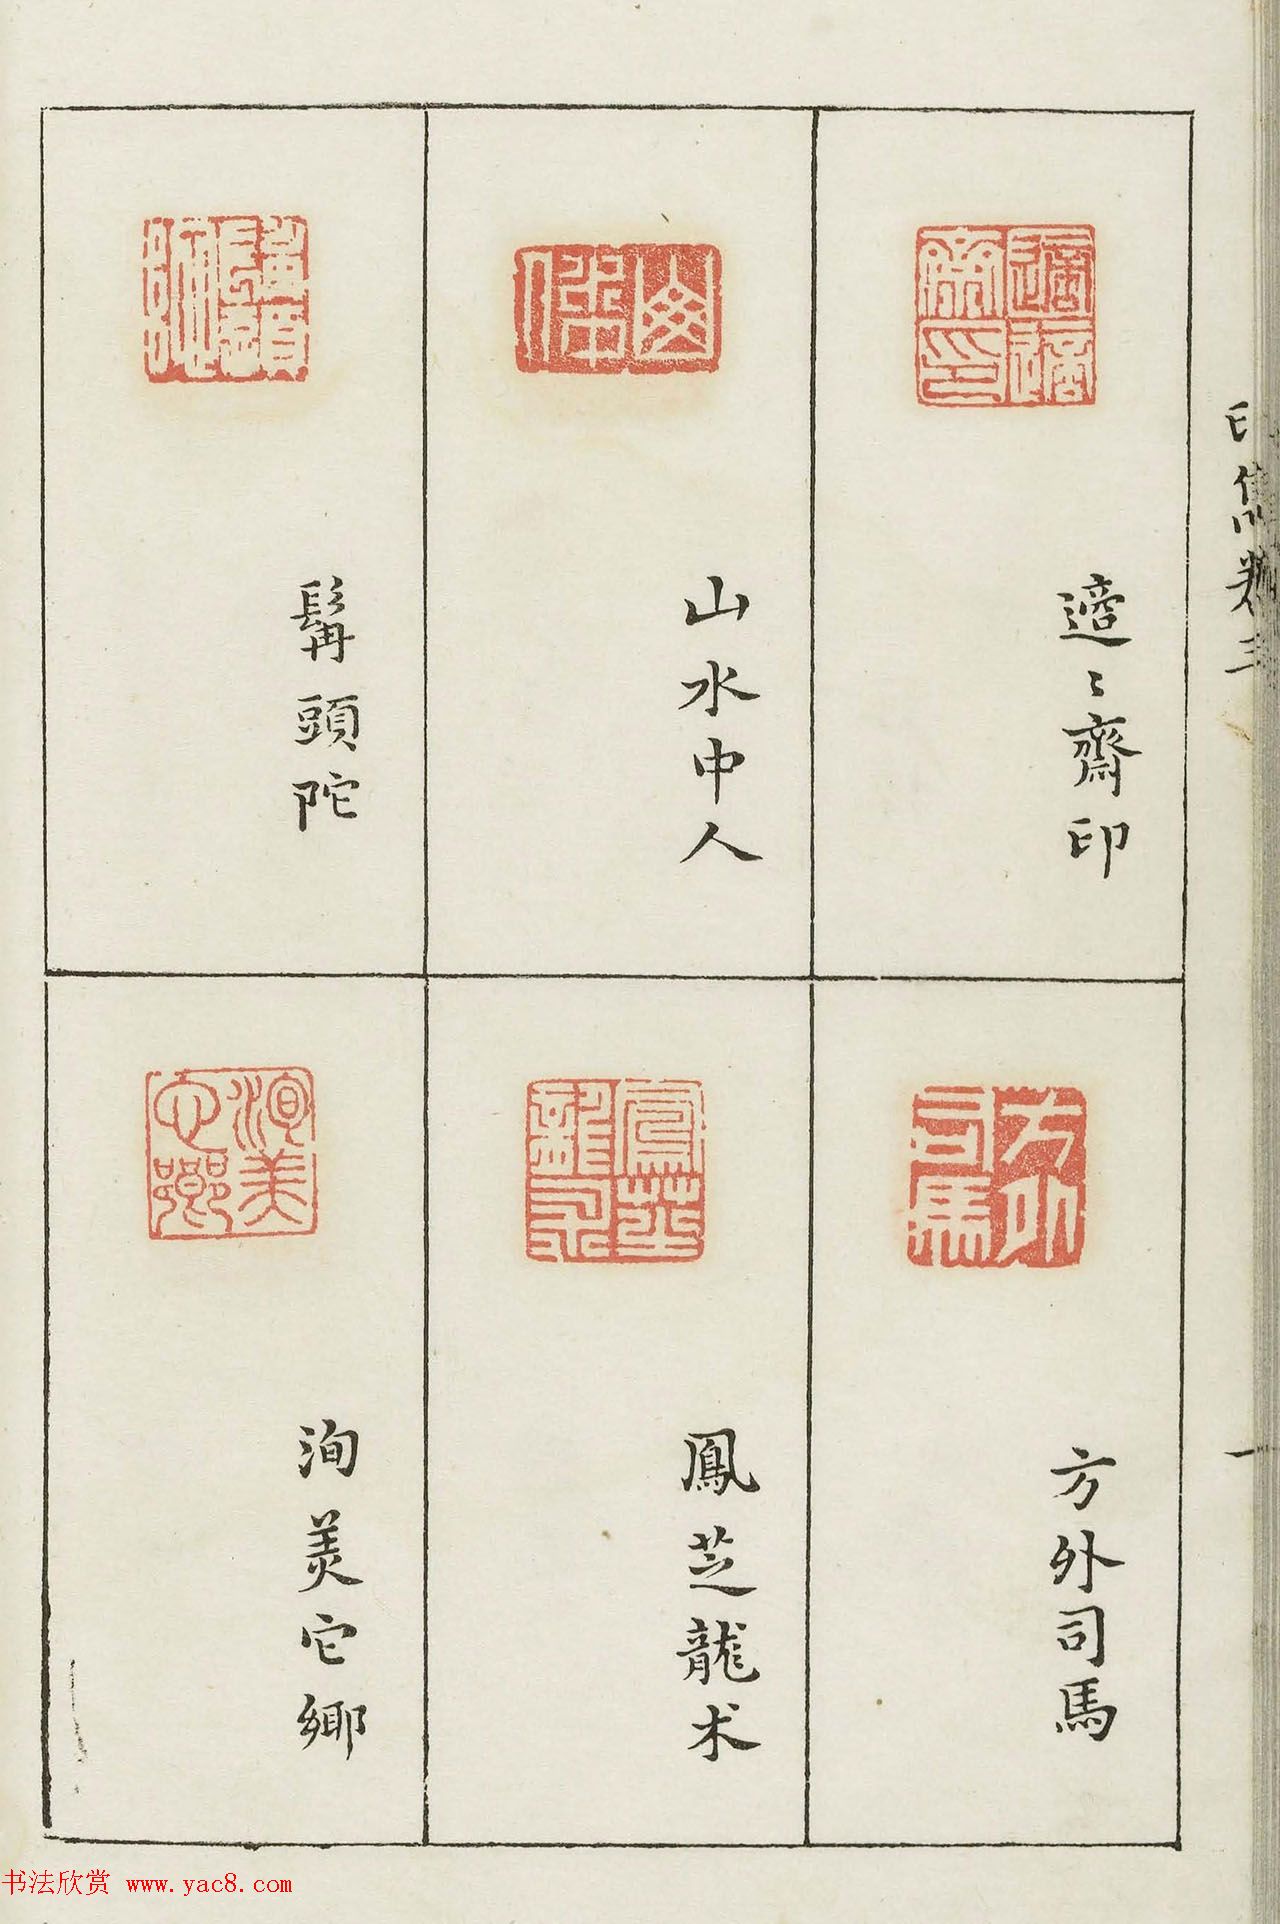 印雋卷三
一
適〻齋印
山水中人
髯頭陀
方外司馬
鳳芝龍术
洵美它鄉
书法欣赏 www.yac8.com